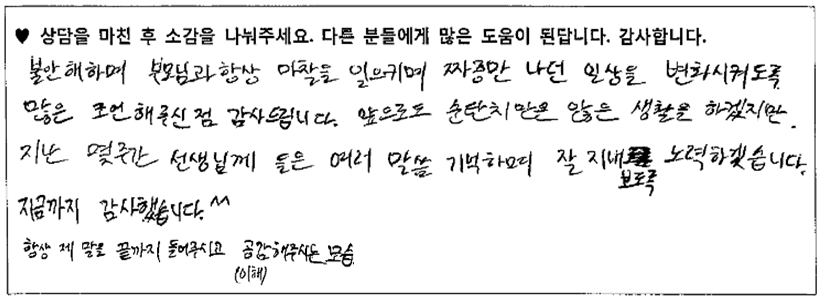 ♥ 상담을 마친 후 소감을 나눠주세요. 다른 분들에게 많은 도움이 된답니다. 감사합니다.
불안해하며 부모님과 항상 마찰을 일으키며 짜증만 나던 일상을 변화시켜도록
많은 조언해주신 점 감사드립니다. 앞으로도 순탄치만은 않은 생활을 하겠지만,
지난 몇주간 선생님께 들은 여러 말씀 기억하며 잘 지내보도록 노력하겠습니다.
지금까지 감사했습니다.^^
항상 제 말을 끝까지 들어주시고 공감해주시는 모습
(이해)